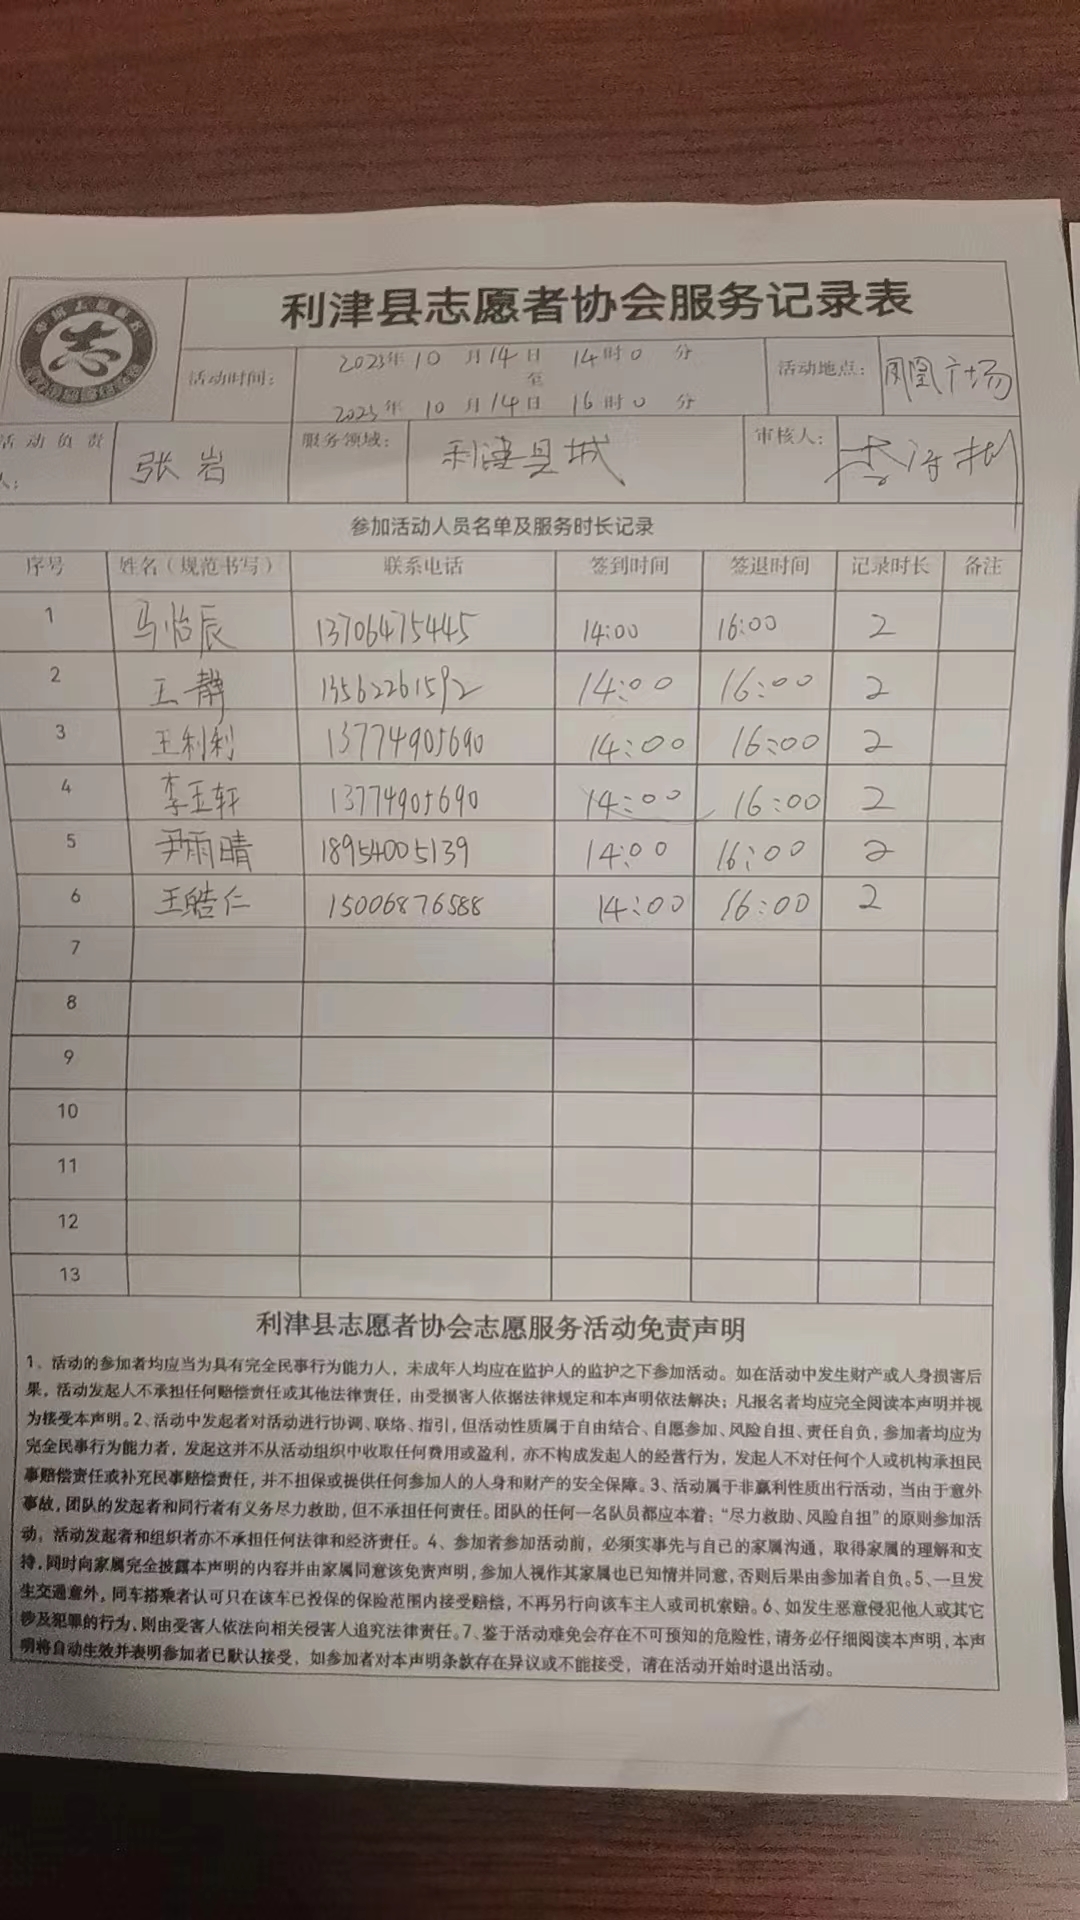 利津县志愿者协会服务记录表
志
活动时间：
2023年 10 月 14 日 14 时 0 分
至
2023年 10 月 14 日 16 时 0 分
活动地点：
凤凰广场
活动负责人：
张岩
服务领域：
利津县城
审核人：
参加活动人员名单及服务时长记录
序号 姓名（规范书写） 联系电话 签到时间 签退时间 记录时长 备注
1 马怡辰 13706475445 14:00 16:00 2
2 王静 13562261592 14:00 16:00 2
3 王利利 13774905690 14:00 16:00 2
4 李玉轩 13774905690 14:00 16:00 2
5 尹雨晴 18954005139 14:00 16:00 2
6 王皓仁 15006876588 14:00 16:00 2
7
8
9
10
11
12
13
利津县志愿者协会志愿服务活动免责声明
1、活动的参加者均应当为具有完全民事行为能力人，未成年人均应在监护人的监护之下参加活动。如在活动中发生财产或人身损害后
果，活动发起人不承担任何赔偿责任或其他法律责任，由受损害人依据法律规定和本声明依法解决；凡报名者均应完全阅读本声明并视
为接受本声明。2、活动中发起者对活动进行协调、联络、指引，但活动性质属于自由结合、自愿参加、风险自担、责任自负，参加者均应为
完全民事行为能力者，发起这并不从活动组织中收取任何费用或盈利，亦不构成发起人的经营行为，发起人不对任何个人或机构承担民
事赔偿责任或补充民事赔偿责任，并不担保或提供任何参加人的人身和财产的安全保障。3、活动属于非赢利性质出行活动，当由于意外
事故，团队的发起者和同行者有义务尽力救助，但不承担任何责任。团队的任何一名队员都应本着：“尽力救助、风险自担”的原则参加活
动，活动发起者和组织者亦不承担任何法律和经济责任。4、参加者参加活动前，必须实事先与自己的家属沟通，取得家属的理解和支
持，同时向家属完全披露本声明的内容并由家属同意该免责声明，参加人视作其家属也已知情并同意，否则后果由参加者自负。5、一旦发
生交通意外，同车搭乘者认可只在该车已投保的保险范围内接受赔偿，不再另行向该车主人或司机索赔。6、如发生恶意侵犯他人或其它
涉及犯罪的行为，则由受害人依法向相关侵害人追究法律责任。7、鉴于活动难免会存在不可预知的危险性，请务必仔细阅读本声明，本声
明将自动生效并表明参加者已默认接受，如参加者对本声明条款存在异议或不能接受，请在活动开始时退出活动。